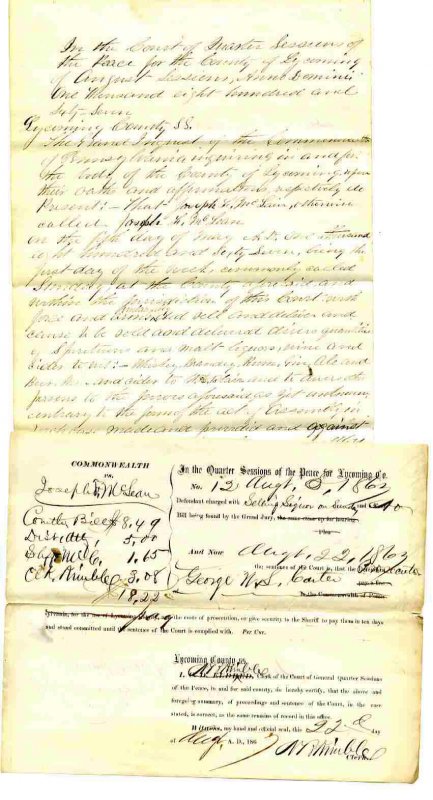 In the Court of Quarter Sessions of
the Peace for the County of Lycoming
of August Sessions, Anno Domini
One thousand eight hundred and
Sixty-Seven
Lycoming County SS.
The Grand Inquest of the Commonwealth
of Pennsylvania inquiring in and for
the body of the County of Lycoming, upon
their oaths and affirmations, respectively do
Present:- That Joseph F. McLain, otherwise
called Joseph F. McLean
on the fifth day of May A.D. one thousand
eight hundred and Sixty Seven, being the
first day of the week, commonly called
Sunday, at the County aforesaid and
within the jurisdiction of this Court with
force and arms did sell and deliver and
cause to be sold and delivered divers quantities
of Spirituous and malt liquors, wine and
Cider to wit:- Whiskey, Brandy, Rum, Gin, Ale and
Beer, and cider to
persons to the jurors aforesaid as yet unknown
contrary to the form of the act of Assembly in
such case made and provided and against
COMMONWEALTH
vs.
Joseph F. McLean
8.49
Dist. Atty 5.00
1.65
Clk Wimble 3.08
18.22
In the Quarter Sessions of the Peace for Lycoming Co.
No. 12 Augt. S, 1867
Defendant charged with Selling Liquor on Sunday
Bill being found by the Grand Jury,
And Now Augt, 22, 1867
the sentence of the Court is, that the
George W. S. Carter
pay
the costs of prosecution, or give security to the Sheriff to pay them in ten days
and stand committed until the sentence of the Court is complied with. Per Cur.
Lycoming County ss.
I, Wimble, Clerk of the Court of General Quarter Sessions
of the Peace, in and for said county, do hereby certify, that the above and
foregoing summary, of proceedings and sentence of the Court, in the case
stated, is correct, as the same remains of record in this office.
Witness, my hand and official seal, this 22d day
of Augt A. D., 1867
Wimble
Clerk.